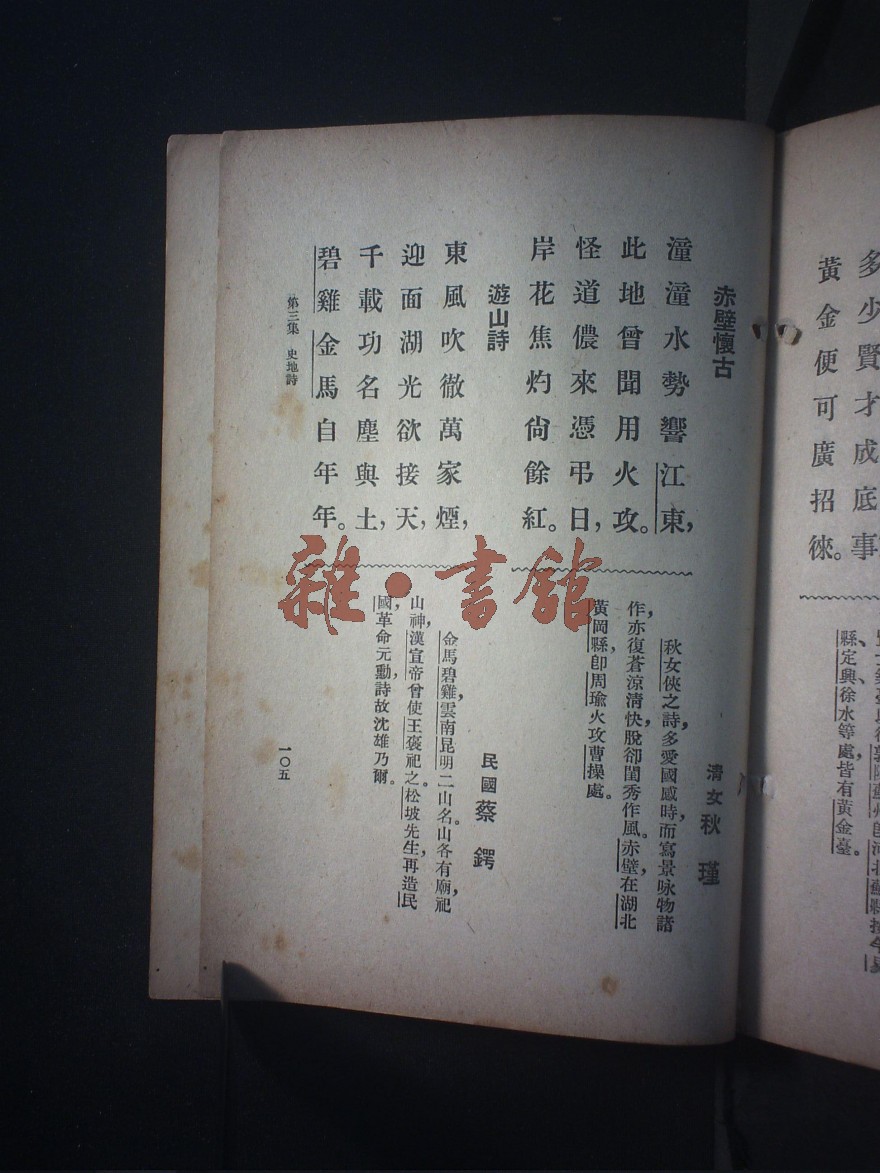 多少賢才成底事
黃金便可廣招徠。
縣、定興、徐水等處，皆有黃金臺。
赤壁懷古
清女秋瑾
潼潼水勢響江東，
此地曾聞用火攻。
怪道儂來憑弔日，
岸花焦灼尙餘紅。
秋女俠之詩，多愛國感時，而寫景咏物諸
作，亦復蒼涼清快，脫卻閨秀作風。赤壁在湖北
黃岡縣，卽周瑜火攻曹操處。
遊山詩
民國蔡鍔
東風吹徹萬家煙，
迎面湖光欲接天，
千載功名塵與土，
碧雞金馬自年年。
金馬碧雞，雲南昆明二山名。山各有廟，祀
山神，漢宣帝曾使王褒祀之。松坡先生，再造民
國，革命元勳，詩故沈雄乃爾。
第三集 史地詩
一〇五
雜·書館